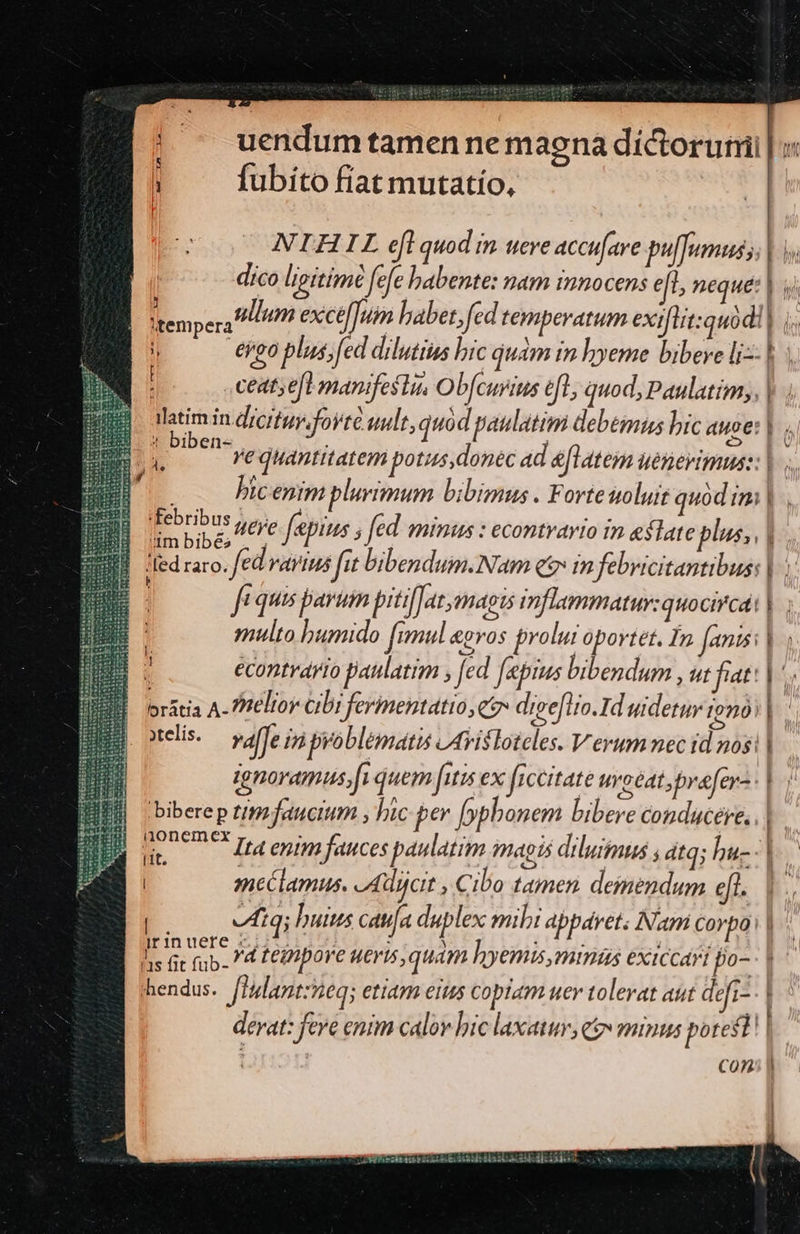 uendum tamen ne magna dictorum
ſubito fiat mutatio.
NIHIL eſt quod in uere accuſare puſſumus,
dico ligitimè ſeſe habente: nam innocens eſt, neque
tempera
ullum exceſſum habet, ſed temperatum exiſtit: quòd
ergo plus, ſed dilutius hic quàm in hyeme bibere li-
ceat, eſt manifeſtū. Obſcurius eſt, quod, Paulatim,
latim in
dicitur. fortè uult, quòd paulatim debemus hic auge
biben-
re quantitatem potus, donec ad æſtatem uenerimus:
hic enim plurimum bibimus. Forte uoluit quòd in
febribus
uere ſæpius, ſed minus: econtrario in æſtate plus,
im bibē,
ſed raro.
ſed rarius ſit bibendum. Nam & in febricitantibus
ſi quis parum pitiſſat, magis inflammatur: quocirca
multo humido ſimul ægros prolui oportet. In ſanis
econtrario paulatim, ſed ſæpius bibendum, ut fiat
orātia A-
melior cibi fermentatio, & digeſtio. Id uidetur igno
telis.
raſſe in problematis Ariſtoteles. Verum nec id nos
ignoramus, ſi quem ſitis ex ſiccitate urgeat, præſer-
bibere p
tim faucium, hic per ſyphonem bibere conducere.
onem ex
Ita enim fauces paulatim magis diluimus, atq; hu-
it.
mectamus. Adijcit, Cibo tamen demendum eſt.
Atq; huius cauſa duplex mihi apparet. Nam corpo
ur in uere
ra tempore ueris, quàm hyemis, minus exiccari po-
us ſit ſub-
hendus.
ſtulant: neq; etiam eius copiam uer tolerat aut deſi-
derat: fere enim calor hic laxatur, & minus poteſt
con